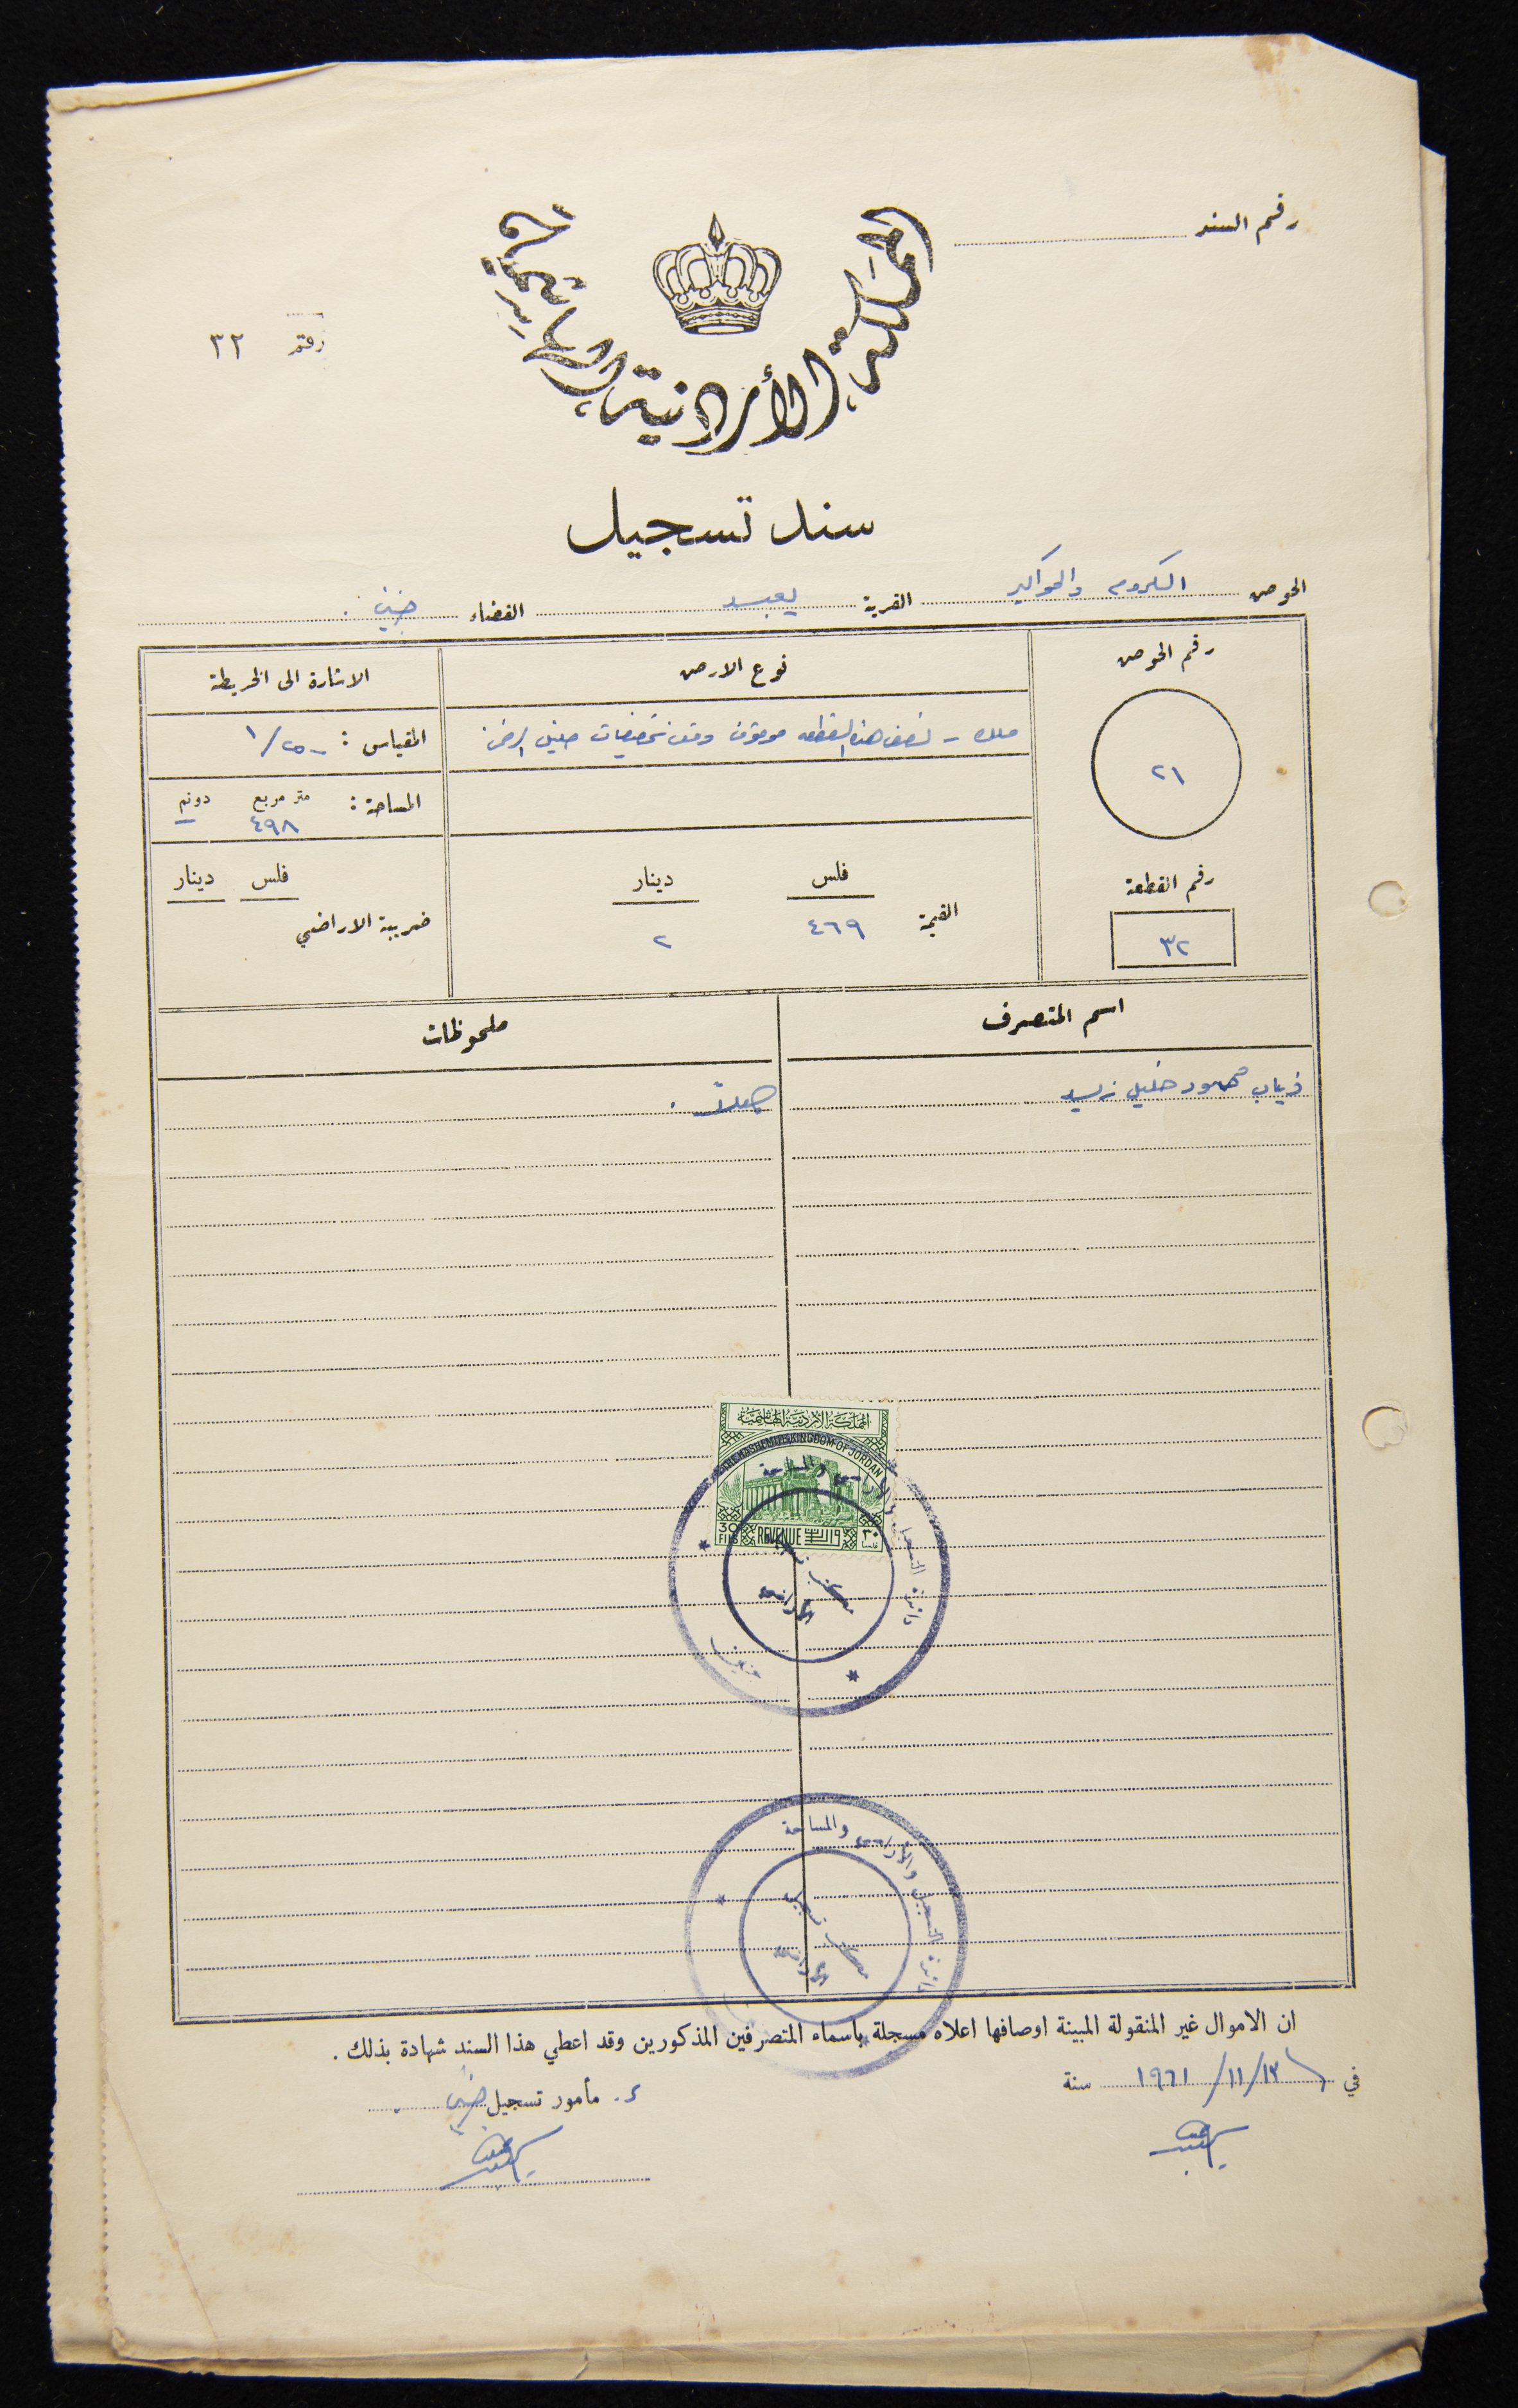 رقم السند
المملكة الأردنية الهاشمية
رقم ٣٢
سند تسجيل
الحوض الكروم والحواكير القرية يعبد القضاء جنين .
رقم الحوض
٢١
رقم القطعة
٣٢
نوع الارض
ملك - نصف هذه القطعه موقوف وقف
القيمة فلس ٤٦٩ دينار ٢
الاشارة الى الخريطة
المقياس : ١/٢٥٠٠
المساحة : متر مربع دونم
٤٩٨ —
فلس دينار
ضريبة الاراضي
اسم المتصرف ملحوظات
ذياب محمود خليل زيد
المملكة الاردنية الهاشمية
THE HASHEMITE KINGDOM OF JORDAN
30 FILS REVENUE ٣٠ فلسا
دائرة التسجيل والأراضي والمساحة
جنين
دائرة التسجيل والأراضي والمساحة
ان الاموال غير المنقولة المبينة اوصافها اعلاه مسجلة باسماء المتصرفين المذكورين وقد اعطي هذا السند شهادة بذلك .
في ١٣/١١/١٩٦١ سنة
مأمور تسجيل جنين .